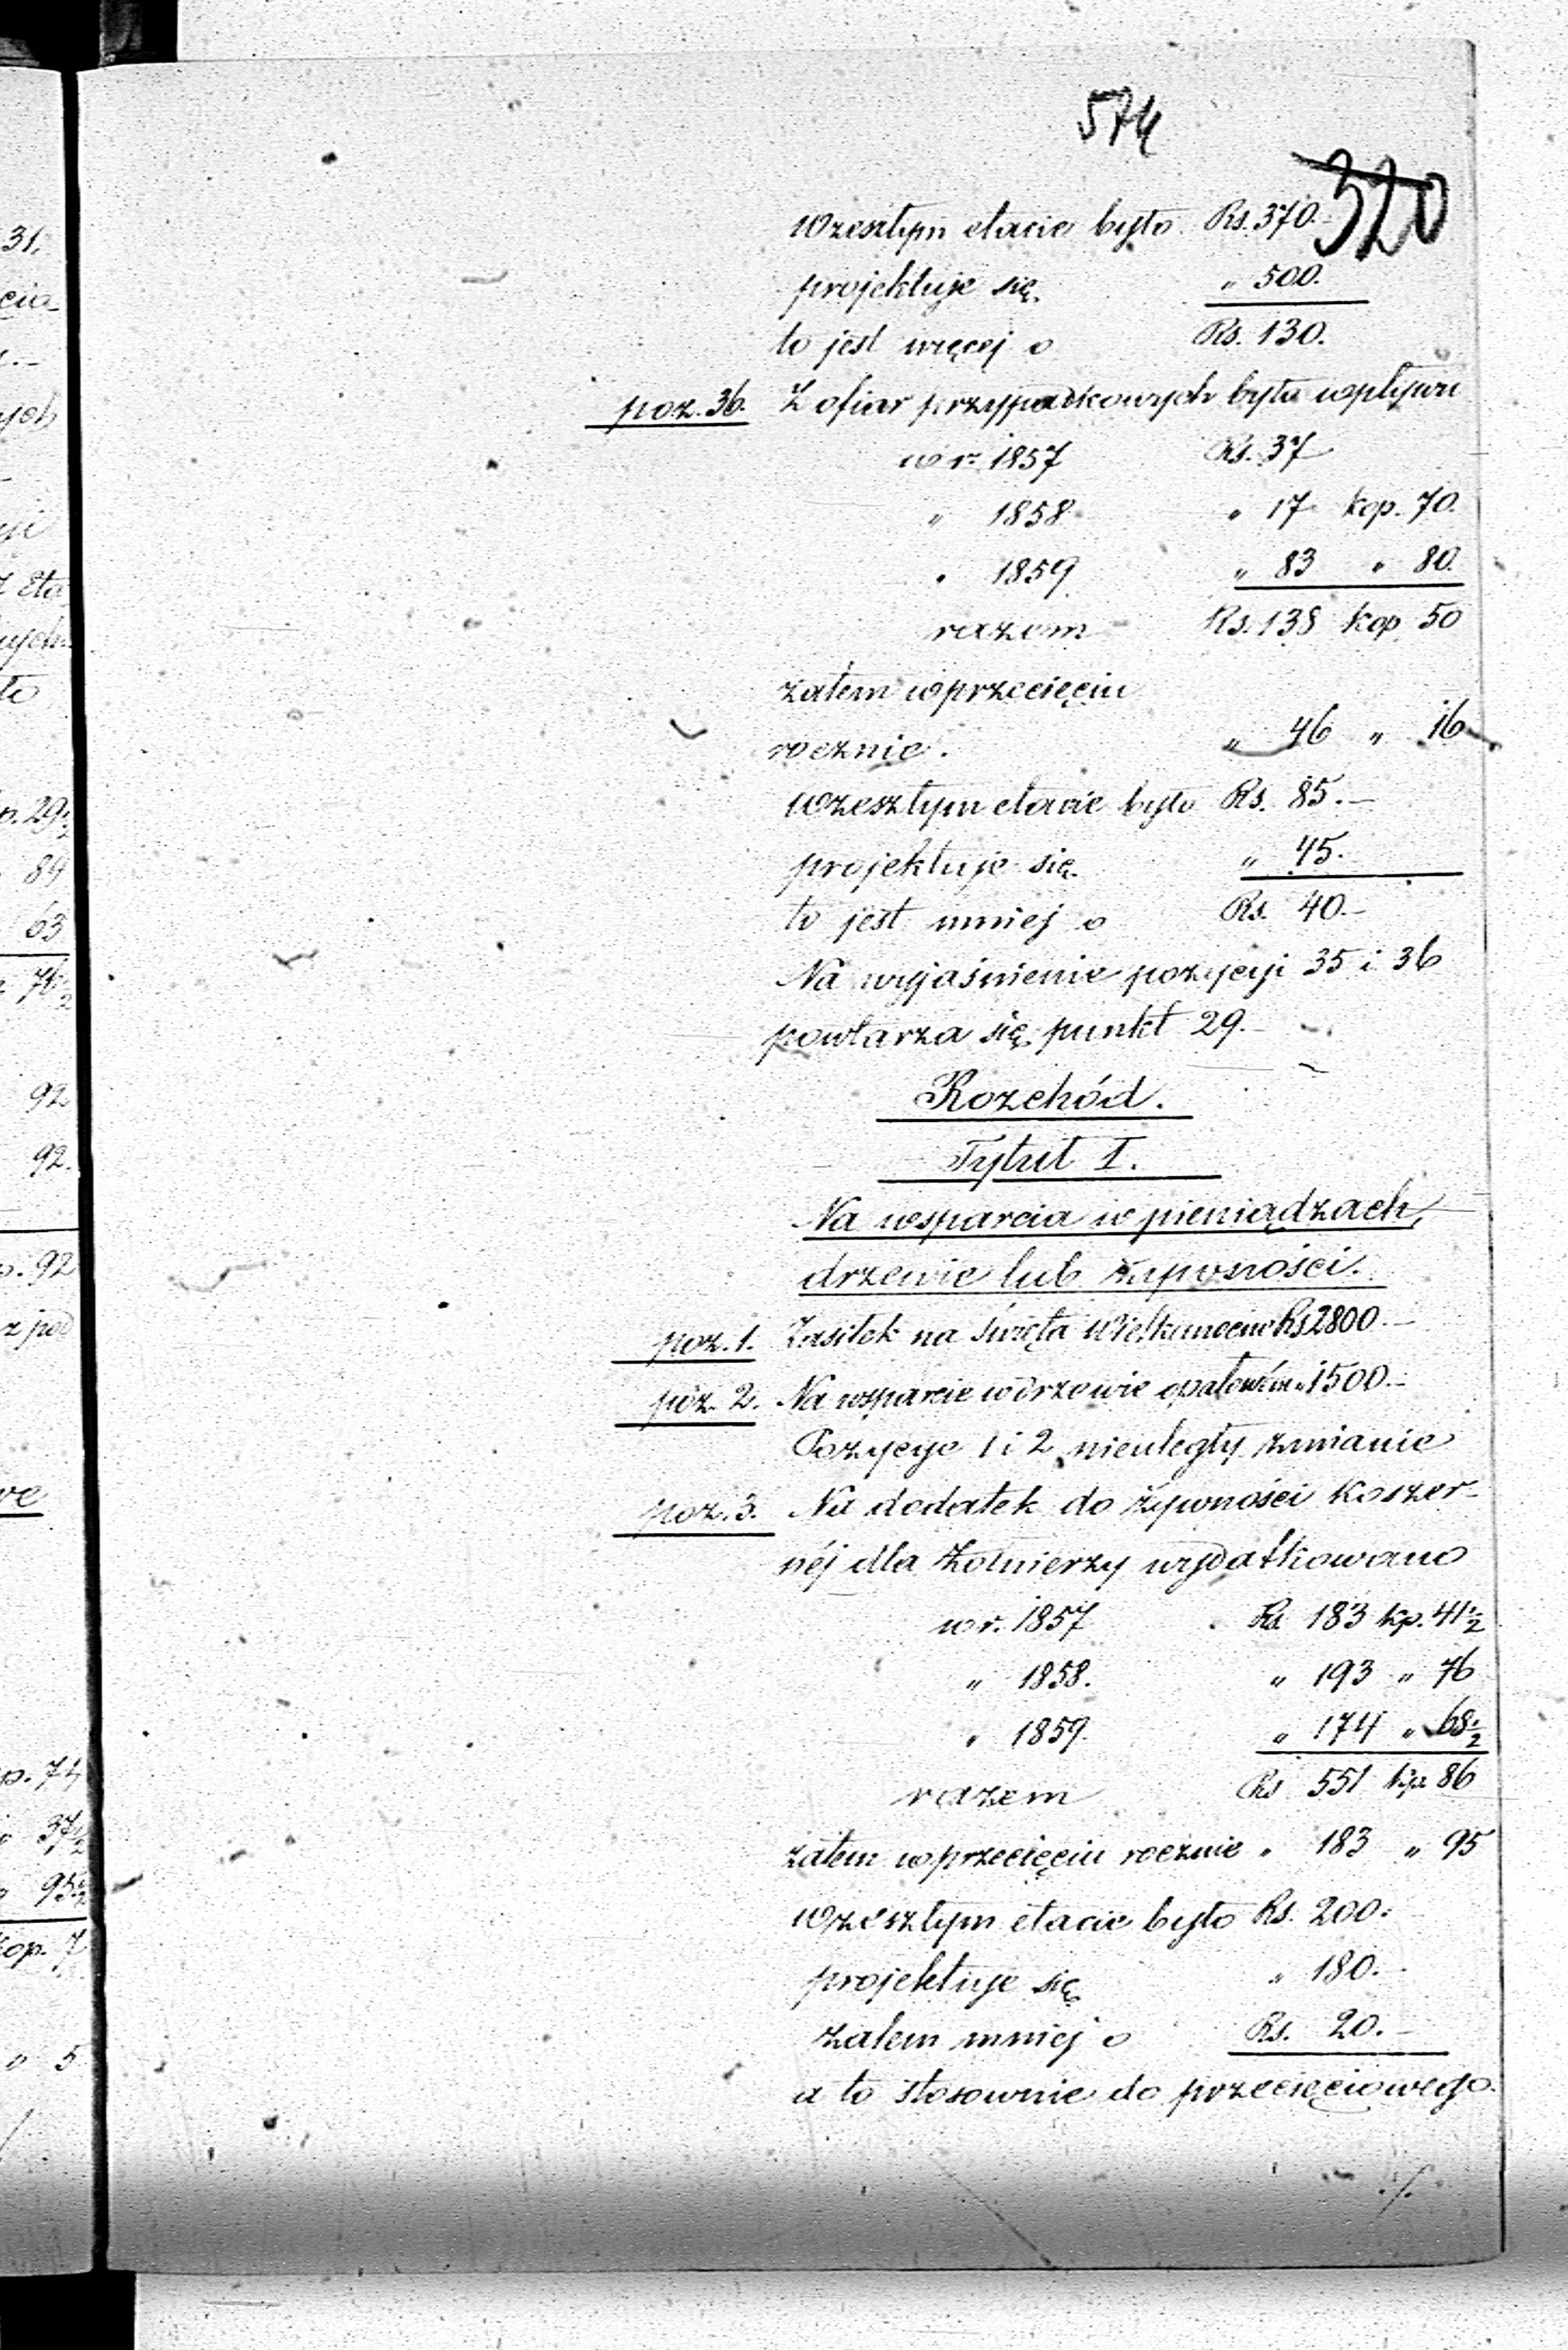 574
320
W zeszłym etacie było Rs. 370.
projektuje się „ 500.
to jest więcej o Rs. 130.
poz. 36. Z ofiar przypadkowych było wpływu
w r. 1857 Rs. 37
„ 1858 „ 17 kop. 70.
„ 1859 „ 83 „ 80.
razem Rs. 138 kop 50
zatem w przecięciu
rocznie. „ 46 „ 16
W zeszłym etacie było Rs. 85.—
projektuje się „ 45.
to jest mniej o Rs. 40.—
Na wyjaśnienie pozycyi 35 i 36
powtarza się punkt 29.—
Rozchód.
Tytuł I.
Na wsparcia w pieniądzach,
drzewie lub żywności.
poz. 1. Zasiłek na Święta Wielkanocne Rs 2800.—
poz. 2. Na wsparcie w drzewie opałowém „ 1500.—
Pozycye 1 i 2 nieuległy zmianie
poz. 3. Na dodatek do żywności koszer-
néj dla Żołnierzy wydatkowano
w r. 1857 Rs 183 kp. 41 1/2
„ 1858. „ 193 „ 76
„ 1859. „ 174 „ 68 1/2
razem Rs 551 kp 86
zatem w przecięciu rocznie „ 183 „ 95
W zeszłym etacie było Rs. 200.
projektuje się „ 180.—
zatem mniej o Rs. 20.—
a to stosownie do przecięciowego
./.
31.
cia
ych
Eta
ych
to
p. 29 1/2
84
63
76 1/2
92
92.
p. 92
z pod
we
p. 74
„ 37 1/2
„ 95 1/2
kop. 7
„ 5